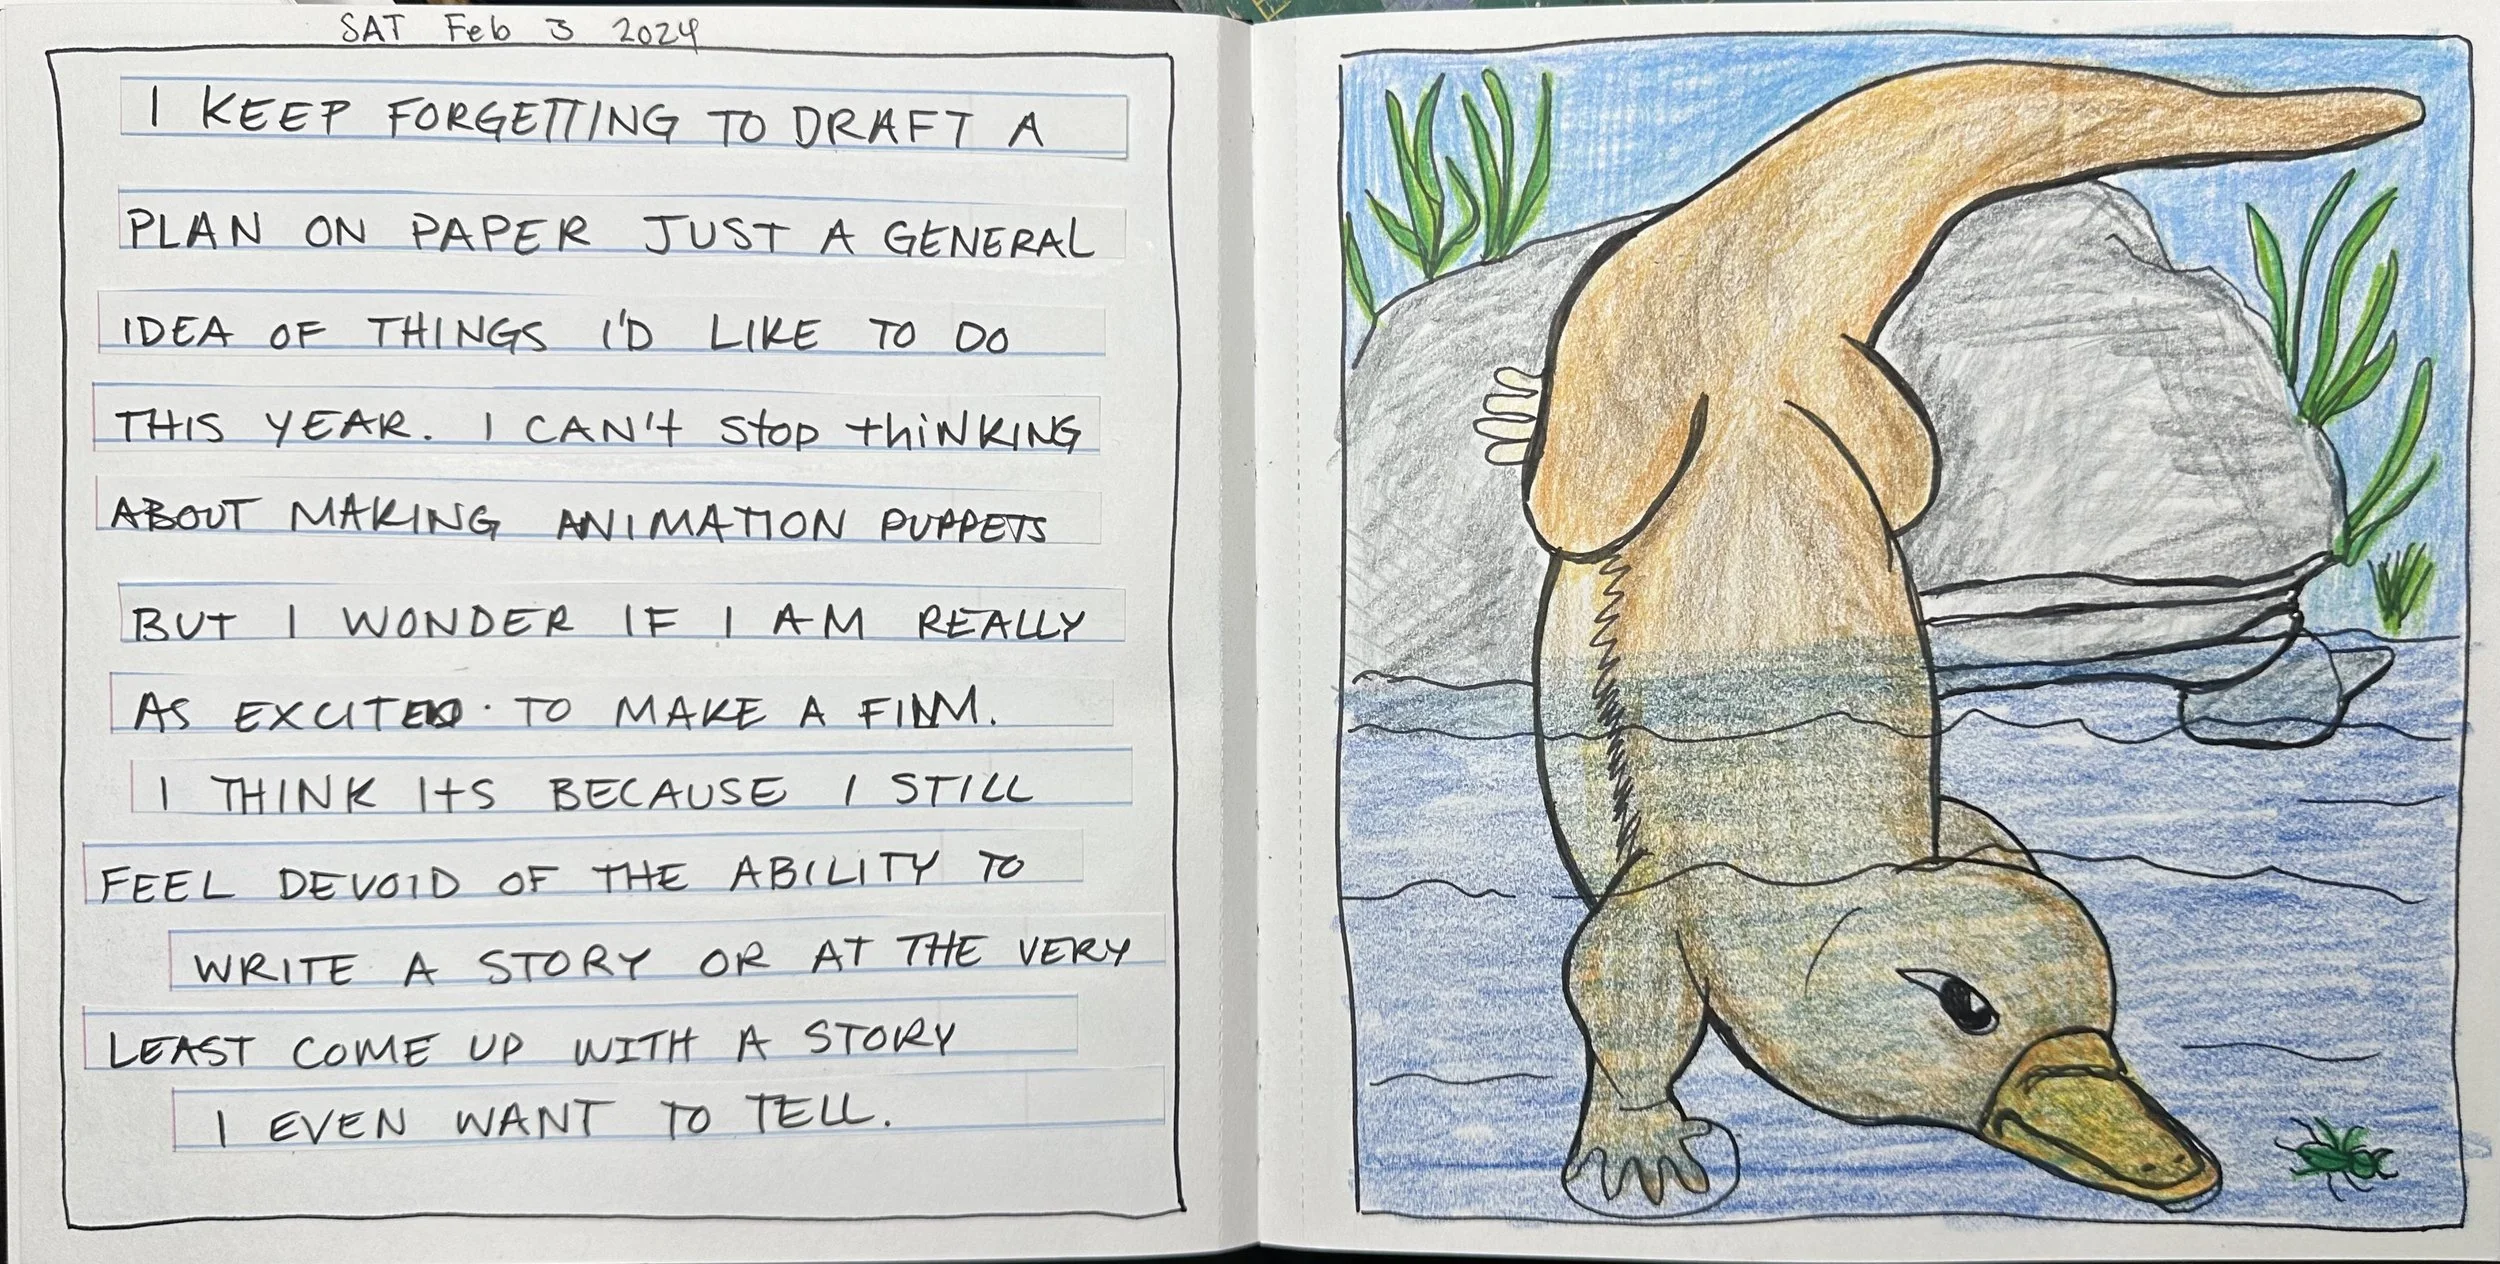 SAT Feb 3 2024
I KEEP FORGETTING TO DRAFT A
PLAN ON PAPER JUST A GENERAL
IDEA OF THINGS I'D LIKE TO DO
THIS YEAR. I CAN't Stop thiNKING
ABOUT MAKING ANIMATION PUPPETS
BUT I WONDER IF I AM REALLY
AS EXCITED. TO MAKE A FILM.
I THINK ItS BECAUSE I STILL
FEEL DEVOID OF THE ABILITY TO
WRITE A STORY OR AT THE VERY
LEAST COME UP WITH A STORY
I EVEN WANT TO TELL.